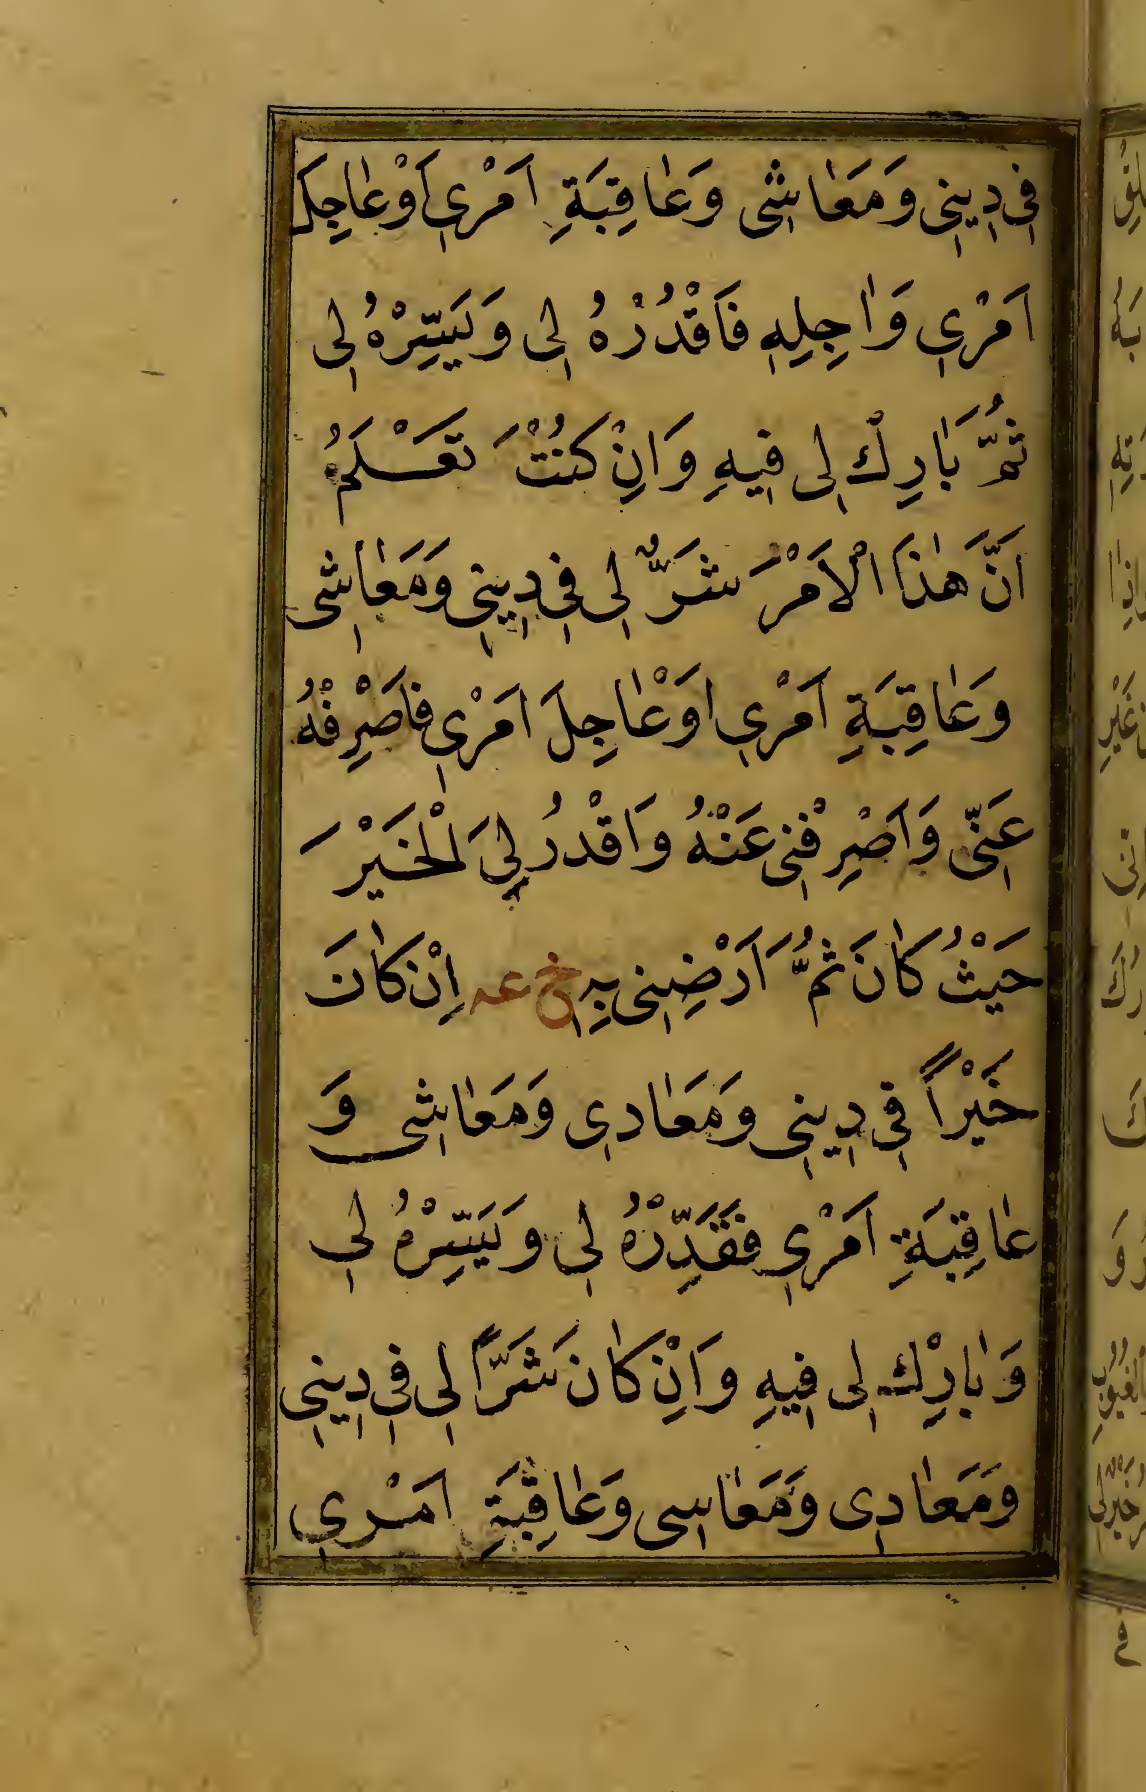 فِی دِینِی وَمَعَاشِی وَعَاقِبَةِ اَمْرِی اَوْعَاجِلِ
اَمْرِی وَاٰجِلِهِ فَاَقْدُرْهُ لِی وَيَسِّرْهُ لِی
ثُمَّ بَارِكْ لِی فِيهِ وَاِنْ كُنْتَ تَعْلَمُ
اَنَّ هٰذَا الْاَمْرَ شَرٌّ لِی فِی دِینِی وَمَعَاشِی
وَعَاقِبَةِ اَمْرِی اَوْعَاجِلَ اَمْرِی فَاصْرِفْهُ
عَنِّی وَاَصْرِفْنِی عَنْهُ وَاَقْدُرْ لِیَ الْخَيْرَ
حَيْثُ كَانَ ثُمَّ اَرْضِنِی بِهِ خ عه اِنْ كَانَ
خَيْراً فِی دِینِی وَمَعَادِی وَمَعَاشِی وَ
عَاقِبَةِ اَمْرِی فَقَدِّرْهُ لِی وَيَسِّرْهُ لِی
وَبَارِكْ لِی فِيهِ وَاَنِْ كَانَ شَرّاً لِی فِی دِینِی
وَمَعَادِی وَمَعَاسِی وَعَاقِبَةِ اَمْرِی